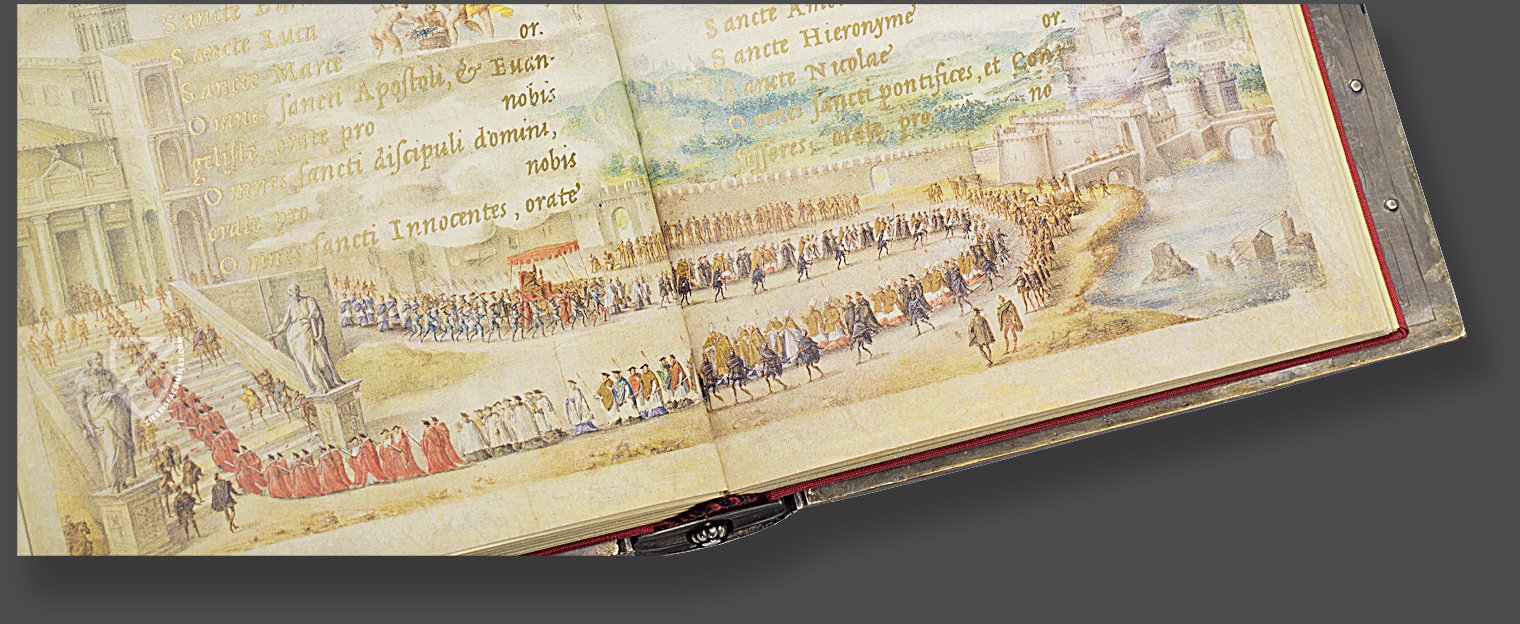 Sancte Luca
Sancte Marce
or.
Omnes sancti Apostoli, & Euan-
geliste, orate pro
nobis
Omnes sancti discipuli domini,
orate pro
nobis
Omnes sancti Innocentes, orate
Sancte
Sancte Hieronyme
or.
Sancte Nicolae
Omnes sancti pontifices, et Con-
fessores, orate pro
no